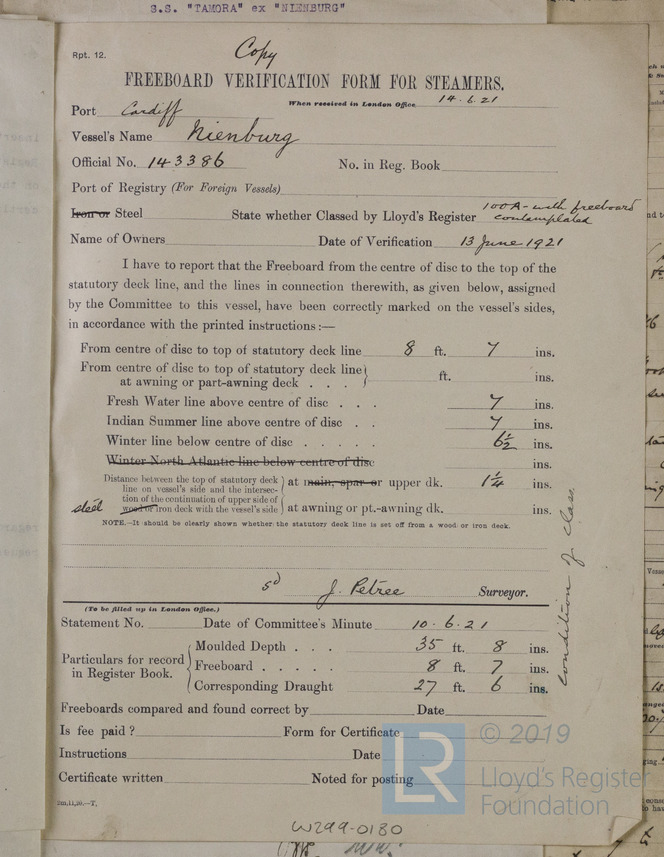 S.S. "TAMORA" ex "NIENBURG"
Rpt. 12.
Copy
FREEBOARD VERIFICATION FORM FOR STEAMERS.
When received in London Office 14.6.21
Port Cardiff
Vessel's Name Nienburg
Official No. 143386 No. in Reg. Book
Port of Registry (For Foreign Vessels)
Iron or Steel State whether Classed by Lloyd's Register 100A - with freeboard
contemplated
Name of Owners Date of Verification 13 June 1921
I have to report that the Freeboard from the centre of disc to the top of the
statutory deck line, and the lines in connection therewith, as given below, assigned
by the Committee to this vessel, have been correctly marked on the vessel's sides,
in accordance with the printed instructions:—
From centre of disc to top of statutory deck line 8 ft. 7 ins.
From centre of disc to top of statutory deck line
at awning or part-awning deck . . . ft. ins.
Fresh Water line above centre of disc . . . 7 ins.
Indian Summer line above centre of disc . . 7 ins.
Winter line below centre of disc . . . . . 6½ ins.
Winter North Atlantic line below centre of disc ins.
Distance between the top of statutory deck
line on vessel's side and the intersec- at main, spar or upper dk. 1¼ ins.
tion of the continuation of upper side of
steel wood or iron deck with the vessel's side at awning or pt.-awning dk. ins.
NOTE.—It should be clearly shown whether the statutory deck line is set off from a wood or iron deck.
condition of class
sd J. Petree Surveyor.
(To be filled up in London Office.)
Statement No. Date of Committee's Minute 10.6.21
Particulars for record
in Register Book.
Moulded Depth . . . 35 ft. 8 ins.
Freeboard . . . . . 8 ft. 7 ins.
Corresponding Draught 27 ft. 6 ins.
Freeboards compared and found correct by Date
Is fee paid? Form for Certificate
Instructions Date
Certificate written Noted for posting
2m,11,20.—T.
LR
© 2019
Lloyd's Register
Foundation
W299-0130